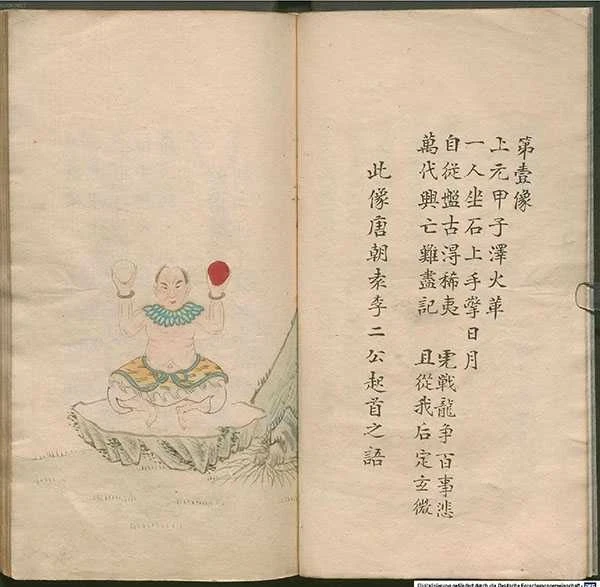 第壹像
上元甲子澤火革
一人坐石上手擎日月
自從盤古淂稀夷 虎戰龍争百事悲
萬代興亡難盡記 且從我后定玄微
此像唐朝袁李二公起首之語
Digitalisierung gefördert durch die Deutsche Forschungsgemeinschaft DFG